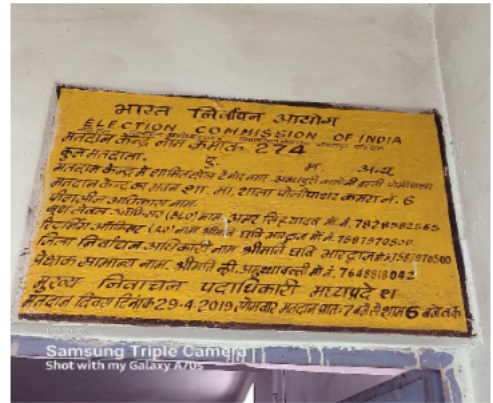 भारत निर्वाचन आयोग
ELECTION COMMISSION OF INDIA
मतदान केन्द्र नाम क्रमांक 274
कुल मतदाता. पु. म. अन्य
मतदान केन्द्र में शामिल क्षेत्र टैगोर नगर, बस्ती पोलीपाथर
मतदान केन्द्र का भवन शा. मा. शाला पोलीपाथर कमरा नं. 6
पीठासीन अधिकारी नाम.
बूथ लेवल आफिसर (BLO) नाम. अमर सिंह यादव मो. नं. 7826582565
रिटर्निंग ऑफिसर नाम श्रीमति छवि भारद्वाज मो. नं. 7587970500.
जिला निर्वाचन अधिकारी नाम श्रीमति छवि भारद्वाज
प्रेक्षक सामान्य नाम. श्रीमति व्ही. मो. नं. 7648818042
मुख्य निर्वाचन पदाधिकारी मध्यप्रदेश
मतदान दिवस दिनांक 29-4-2019 सोमवार मतदान प्रातः 7 बजे से शाम 6 बजे तक
Samsung Triple Camera
Shot with my Galaxy A70s